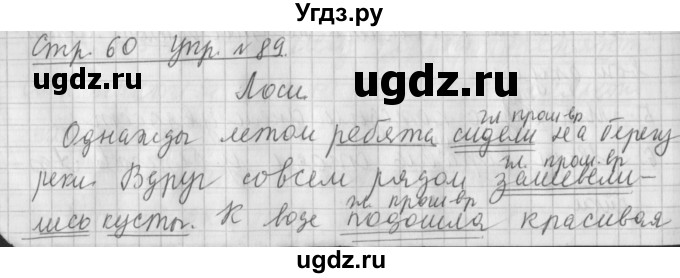 Угдз.ру
Стр. 60 Упр. №89.
ugdz.ru ugdz.ru
Лоси.
гл. прош. вр
Однажды летом ребята сидели на берегу
гл. прош. вр
реки. Вдруг совсем рядом зашевели-
гл. прош. вр
лись кусты. К воде подошла красивая
ugdz.ru ugdz.ru
Угдз.ру